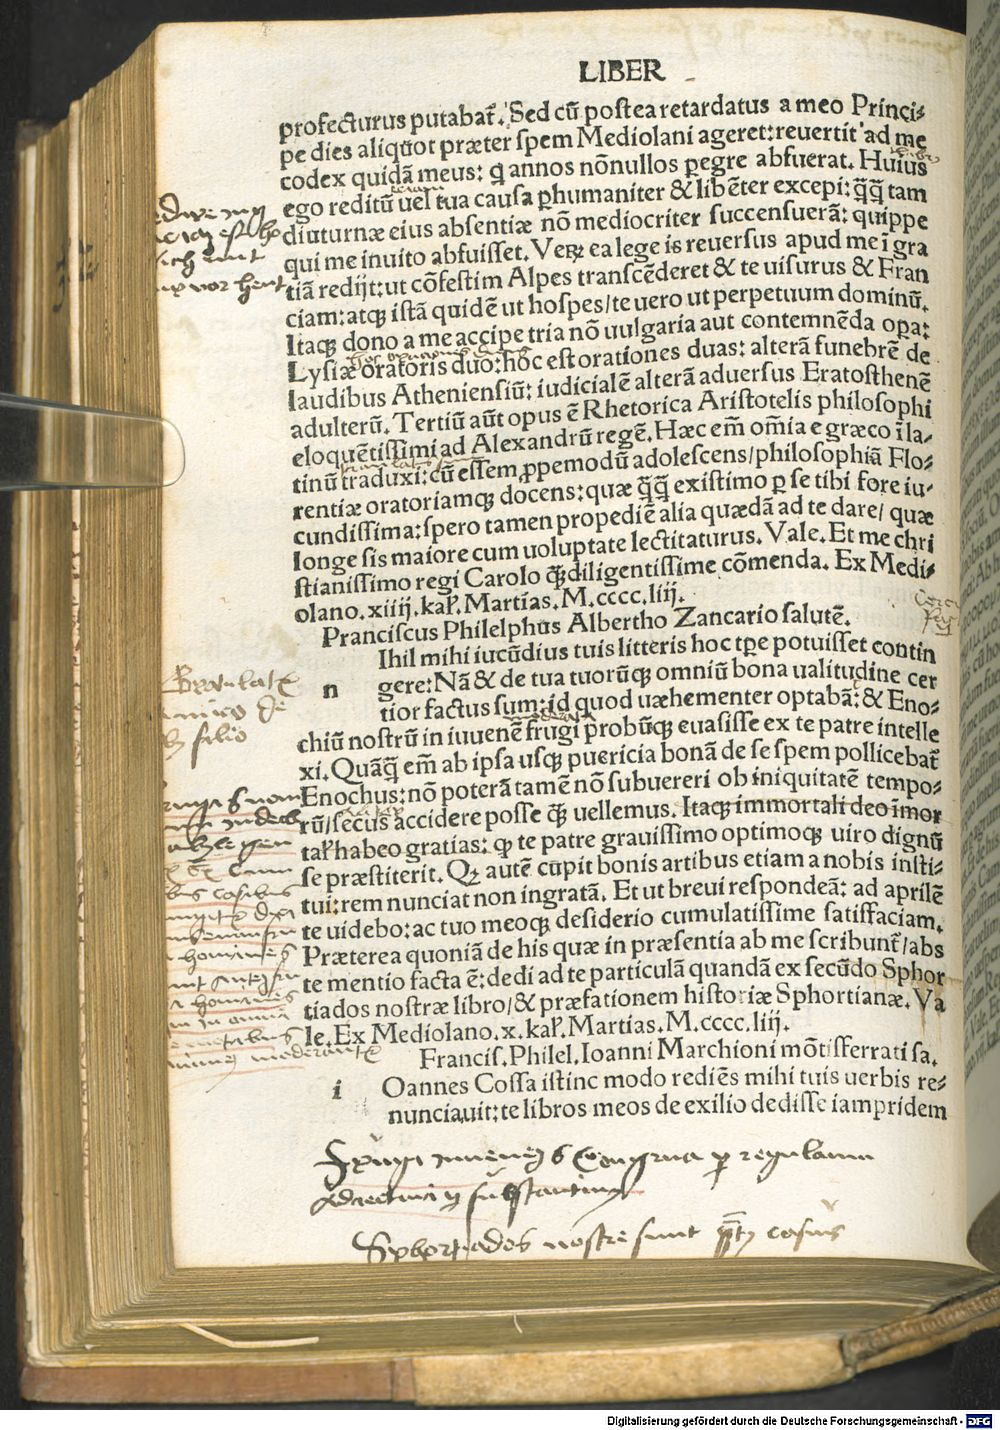 LIBER
profecturus putabat̃. Sed cũ postea retardatus a meo Princi⸗
pe dies aliquot præter spem Mediolani ageret: reuertit̃ ad me
codex quidã meus: q̃ annos nõnullos ꝑegre abfuerat. Huius
ego reditũ uel tua causa ꝑhumaniter & libẽter excepi: q̃q̃ tam
diuturnæ eius absentiæ nõ mediocriter succensuerã: quippe
qui me inuito abfuisset. Veꝝ ea lege is reuersus apud me i gra
tiã redijt: ut cõfestim Alpes transcẽderet & te uisurus & Fran
ciam: atqꝫ istã quidẽ ut hospes/ te uero ut perpetuum dominũ.
Itaqꝫ dono a me accipe tria nõ uulgaria aut contemnẽda oꝑa:
Lysiæ oratoris duo: hoc est orationes duas: alterã funebrẽ de
laudibus Atheniensiũ: iudicialẽ alterã aduersus Eratosthenẽ
adulterũ. Tertiũ aũt opus ẽ Rhetorica Aristotelis philosophi
eloquẽtissimi ad Alexandrũ regẽ. Hæc em̃ om̃ia e græco ĩ la⸗
tinũ traduxi: cũ essem ꝓpemodũ adolescens/ philosophiã Flo⸗
rentiæ oratoriamqꝫ docens: quæ q̃q̃ existimo ꝑ se tibi fore iu⸗
cundissima: spero tamen propediẽ alia quædã ad te dare/ quæ
longe sis maiore cum uoluptate lectitaturus. Vale. Et me chri
stianissimo regi Carolo q̃ꝫ diligentissime cõmenda. Ex Medi⸗
olano. xiiij. kal̃. Martias. M. cccc. liij.
Pranciscus Philelphus Albertho Zancario salutẽ.
n Ihil mihi iucũdius tuis litteris hoc tꝑe potuisset contin
gere: Nã & de tua tuorũqꝫ omniũ bona ualitudine cer
tior factus sum: id quod uæhementer optabã: & Eno⸗
chiũ nostrũ in iuuenẽ frugi probũqꝫ euasisse ex te patre intelle
xi. Quãq̃ em̃ ab ipsa usqꝫ puericia bonã de se spem pollicebat̃
Enochus: nõ poterã tamẽ nõ subuereri ob iniquitatẽ tempo⸗
rũ/ secus accidere posse q̃ꝫ uellemus. Itaqꝫ immortali deo ĩmor
tal̃ habeo gratias: ꝙ te patre grauissimo optimoqꝫ uiro dignũ
se præstiterit. Qꝫ autẽ cupit bonis artibus etiam a nobis insti⸗
tui: rem nunciat non ingratã. Et ut breui respondeã: ad aprilẽ
te uidebo: ac tuo meoqꝫ desiderio cumulatissime satisfaciam.
Præterea quoniã de his quæ in præsentia ab me scribunt̃/ abs
te mentio facta ẽ: dedi ad te particulã quandã ex secũdo Sphor
tiados nostræ libro/ & præfationem historiæ Sphortianæ. Va
le. Ex Mediolano. x. kal̃. Martias. M. cccc. liij.
Francis. Philel. Ioanni Marchioni mõtisferrati sa.
i Oannes Cossa istinc modo rediẽs mihi tuis uerbis re⸗
nunciauit: te libros meos de exilio dedisse iampridem
Frugi iuuenes Congrua ꝑ regulam
Sphortiados nostre sunt casus
Digitalisierung gefördert durch die Deutsche Forschungsgemeinschaft - DFG